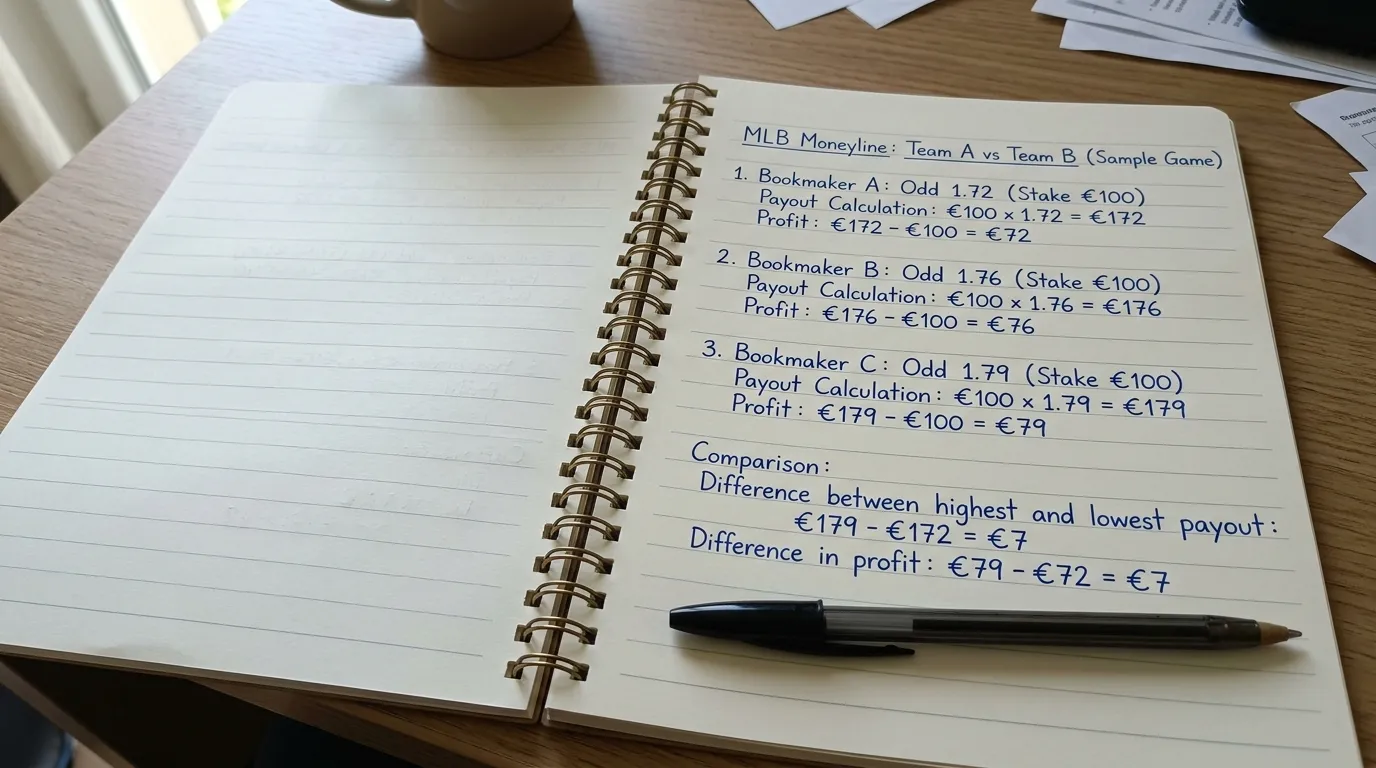 MLB Moneyline: Team A vs Team B (Sample Game)
1. Bookmaker A: Odd 1.72 (Stake €100)
Payout Calculation: €100 x 1.72 = €172
Profit: €172 - €100 = €72
2. Bookmaker B: Odd 1.76 (Stake €100)
Payout Calculation: €100 x 1.76 = €176
Profit: €176 - €100 = €76
3. Bookmaker C: Odd 1.79 (Stake €100)
Payout Calculation: €100 x 1.79 = €179
Profit: €179 - €100 = €79
Comparison:
Difference between highest and lowest payout:
€179 - €172 = €7
Difference in profit: €79 - €72 = €7